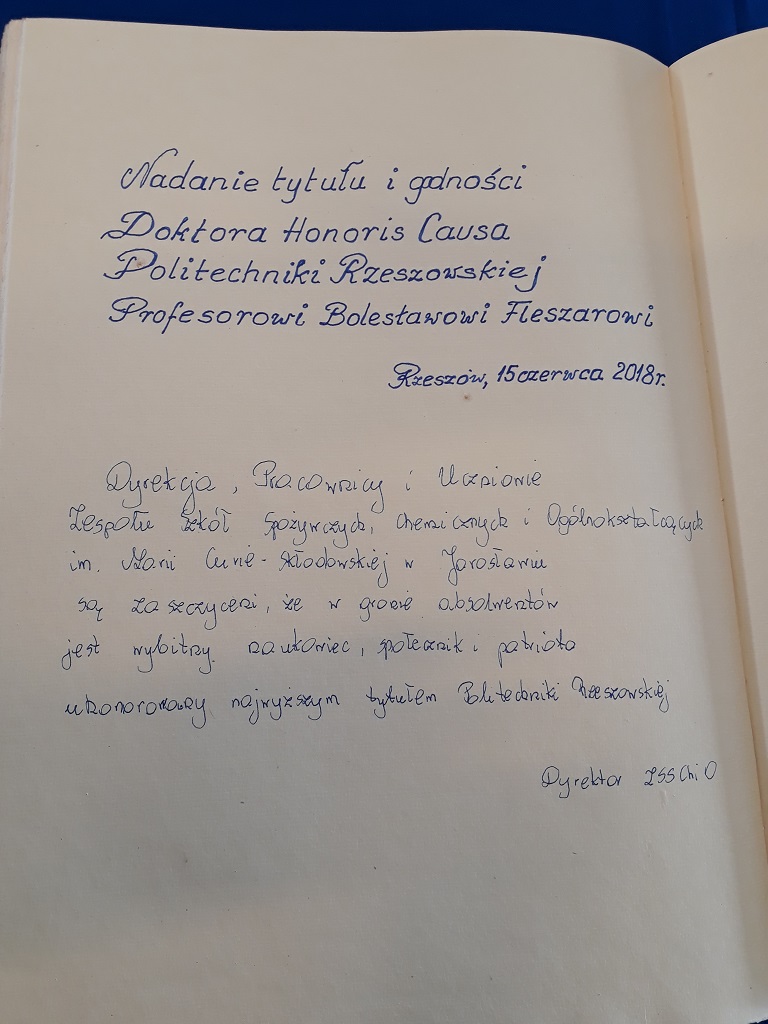 Nadanie tytułu i godności
Doktora Honoris Causa
Politechniki Rzeszowskiej
Profesorowi Bolesławowi Fleszarowi
Rzeszów, 15 czerwca 2018r.
Dyrekcja, Pracownicy i Uczniowie
Zespołu Szkół Spożywczych, Chemicznych i Ogólnokształcących
im. Marii Curie-Skłodowskiej w Jarosławiu
są zaszczyceni, że w gronie absolwentów
jest wybitny naukowiec, społecznik i patriota
uhonorowany najwyższym tytułem Politechniki Rzeszowskiej
Dyrektor ZSSChiO